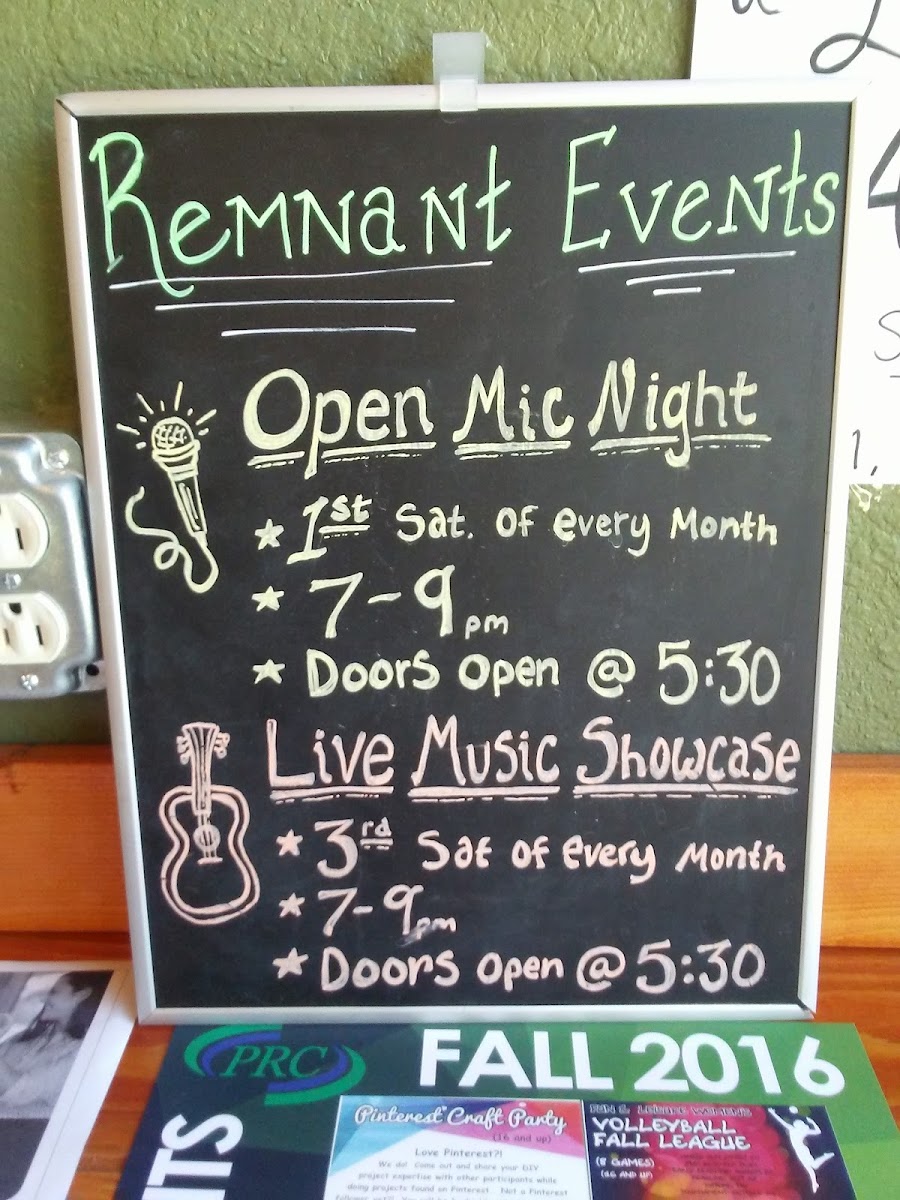 Remnant Events
Open Mic Night
1st Sat. of every Month
7-9pm
Doors Open @ 5:30
Live Music Showcase
3rd Sat of every Month
7-9pm
Doors open @ 5:30
PRC
FALL 2016
Pinterest Craft Party
(16 and up)
Love Pinterest?!
We do! Come out and share your
project expertise with other participants while
doing projects found on Pinterest. Not a Pinterest
FUN & LEISURE WOMEN'S
VOLLEYBALL
FALL LEAGUE
(8 GAMES)
(16 AND UP)